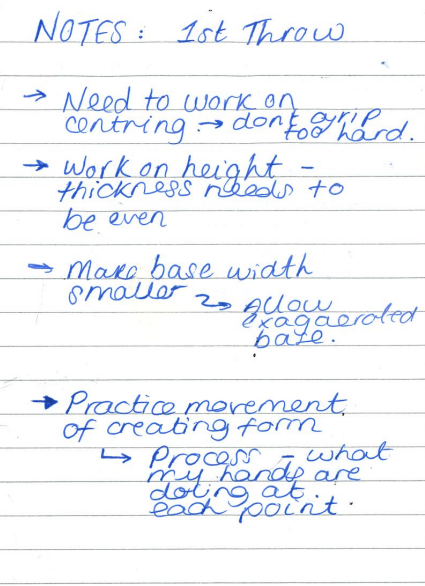 NOTES : 1st Throw
→ Need to work on
centring → dont grip
too hard.
→ Work on height -
thickness needs to
be even
→ Make base width
smaller → allow
exagaerated
base.
→ Practice movement
of creating form
↳ Process - what
my hands are
doing at
each point.